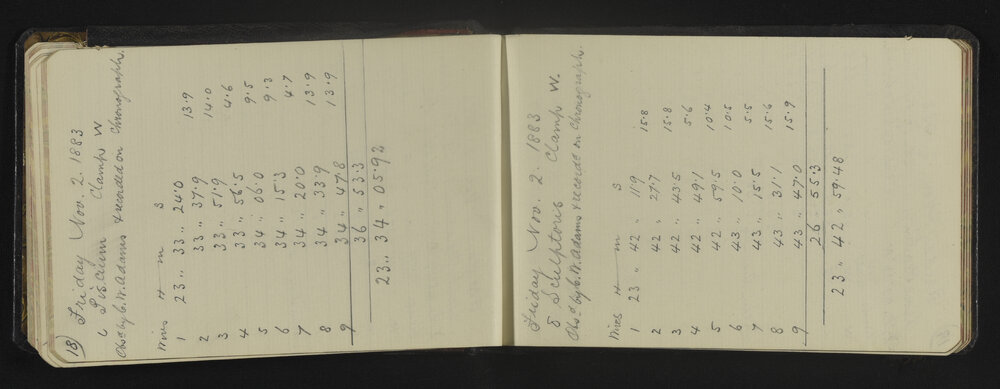 18) Friday Nov. 2. 1883
ι Piscium Clamp W
Obsd by C. W. Adams & recorded on Chronograph.
Wires H m S
1 23 „ 33 „ 24.0
2 33 „ 37.9 13.9
3 33 „ 51.9 14.0
4 33 „ 56.5 4.6
5 34 „ 06.0 9.5
6 34 „ 15.3 9.3
7 34 „ 20.0 4.7
8 34 „ 33.9 13.9
9 34 „ 47.8 13.9
36 „ 53.3
23 „ 34 „ 05.92
Friday Nov. 2. 1883
δ Sculptoris Clamp W.
Obsd by C. W. Adams & recordd on Chronograph.
Wires H m S
1 23 „ 42 „ 11.9
2 42 „ 27.7 15.8
3 42 „ 43.5 15.8
4 42 „ 49.1 5.6
5 42 „ 59.5 10.4
6 43 „ 10.0 10.5
7 43 „ 15.5 5.5
8 43 „ 31.1 15.6
9 43 „ 47.0 15.9
26 „ 55.3
23 „ 42 „ 59.48